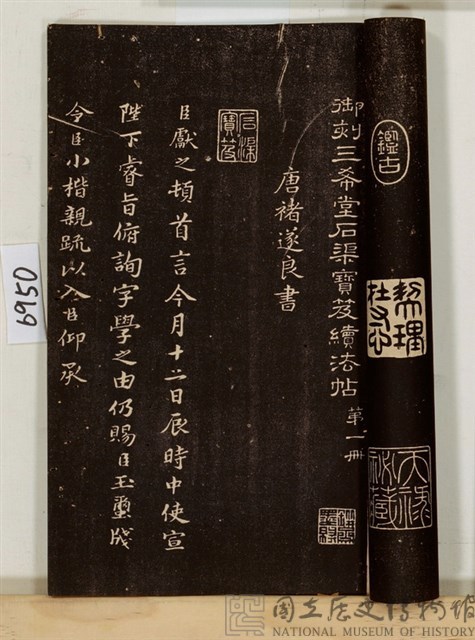 御刻三希堂石渠寶笈續法帖 第一冊
唐褚遂良書
石渠
寶笈
臣獻之頓首言今月十二日辰時中使宣
陛下睿旨俯詢字學之由仍賜臣玉璽牋
令臣小楷親䟽以入臣仰承
鑑古
6950
國立歷史博物館
NATIONAL MUSEUM OF HISTORY